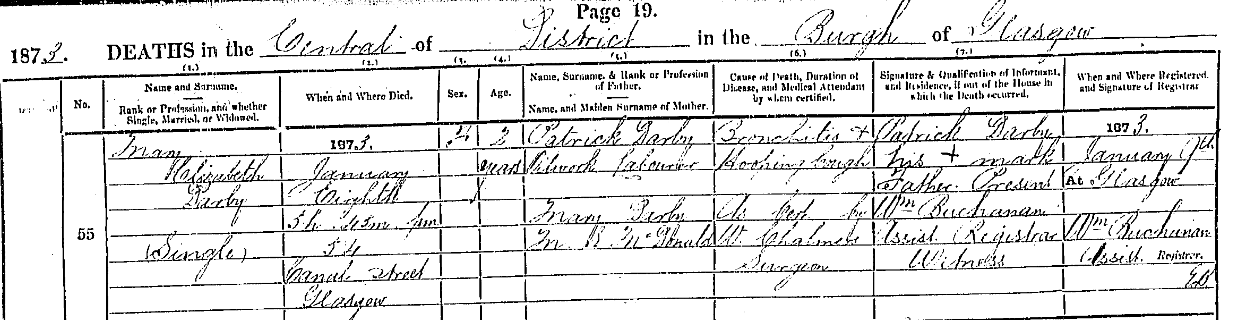 Page 19.
1873. DEATHS in the Central of District in the Burgh of Glasgow
(1.) (2.) (3. (4.) (5.) (6.) (7.)
No.
Name and Surname.
Rank or Profession, and whether Single, Married, or Widowed.
When and Where Died.
Sex.
Age.
Name, Surname, & Rank or Profession of Father.
Name, and Maiden Surname of Mother.
Cause of Death, Duration of Disease, and Medical Attendant by whom certified.
Signature & Qualification of Informant, and Residence, if out of the House in which the Death occurred.
When and Where Registered, and Signature of Registrar
55
Mary
Elizabeth
Darby
(Single)
1873.
January
Eighth
5 h. 45 m. pm
54
Canal Street
Glasgow
F
2
years
Patrick Darby
Labourer
Mary Darby
M. S. McDonald
Bronchitis +
Hooping Cough
As Cert by
W. Chalmers
Surgeon
Patrick Darby
his + mark
Father Present
Wm Buchanan
Assist Registrar
Witness
1873.
January 9th
At Glasgow
Wm Buchanan
Assist. Registrar.